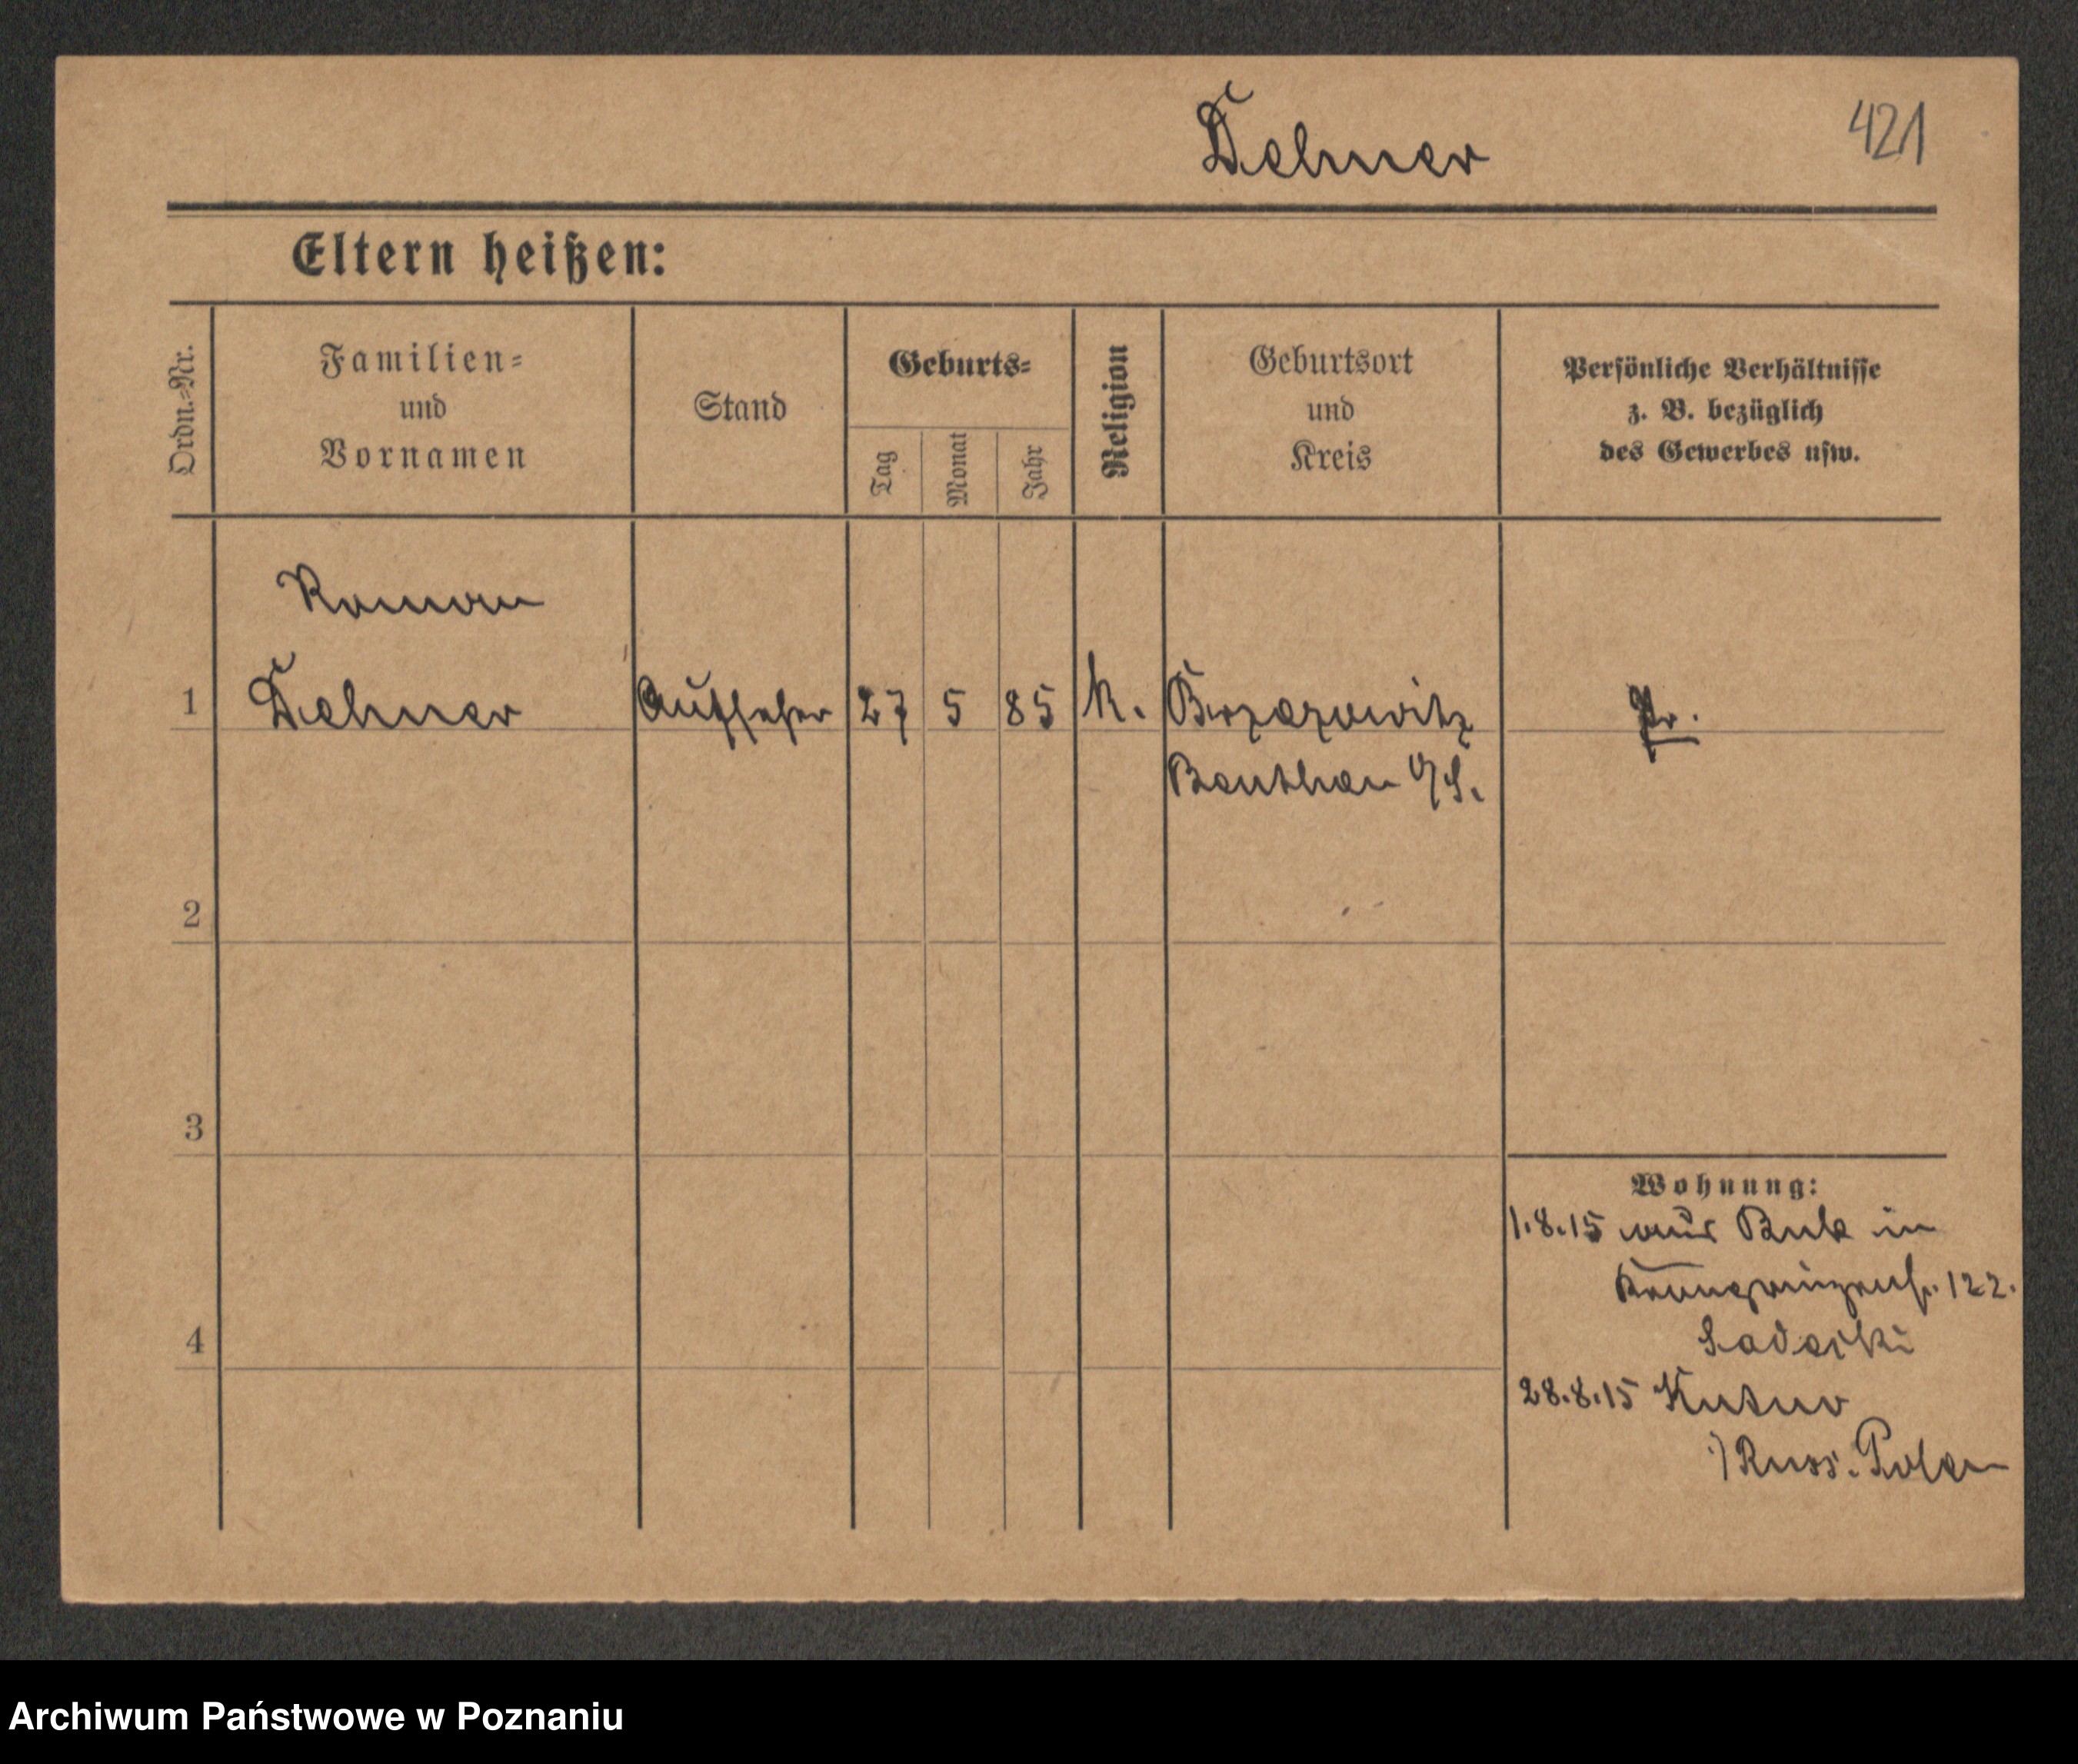 Dehner
421
Eltern heißen:
Ordn.-Nr.
Familien-
und
Vornamen
Stand
Geburts-
Tag
Monat
Jahr
Religion
Geburtsort
und
Kreis
Persönliche Verhältnisse
z. B. bezüglich
des Gewerbes usw.
Roman
1 Dehner Aufseher 27 5 85 k. Brzezowitz Pr.
Beuthen O/S.
2
3
4
Wohnung:
1.8.15 aus Buk in
Kronprinzenstr. 122.
Sadecki
28.8.15 Kutno
Russ. Polen
Archiwum Państwowe w Poznaniu